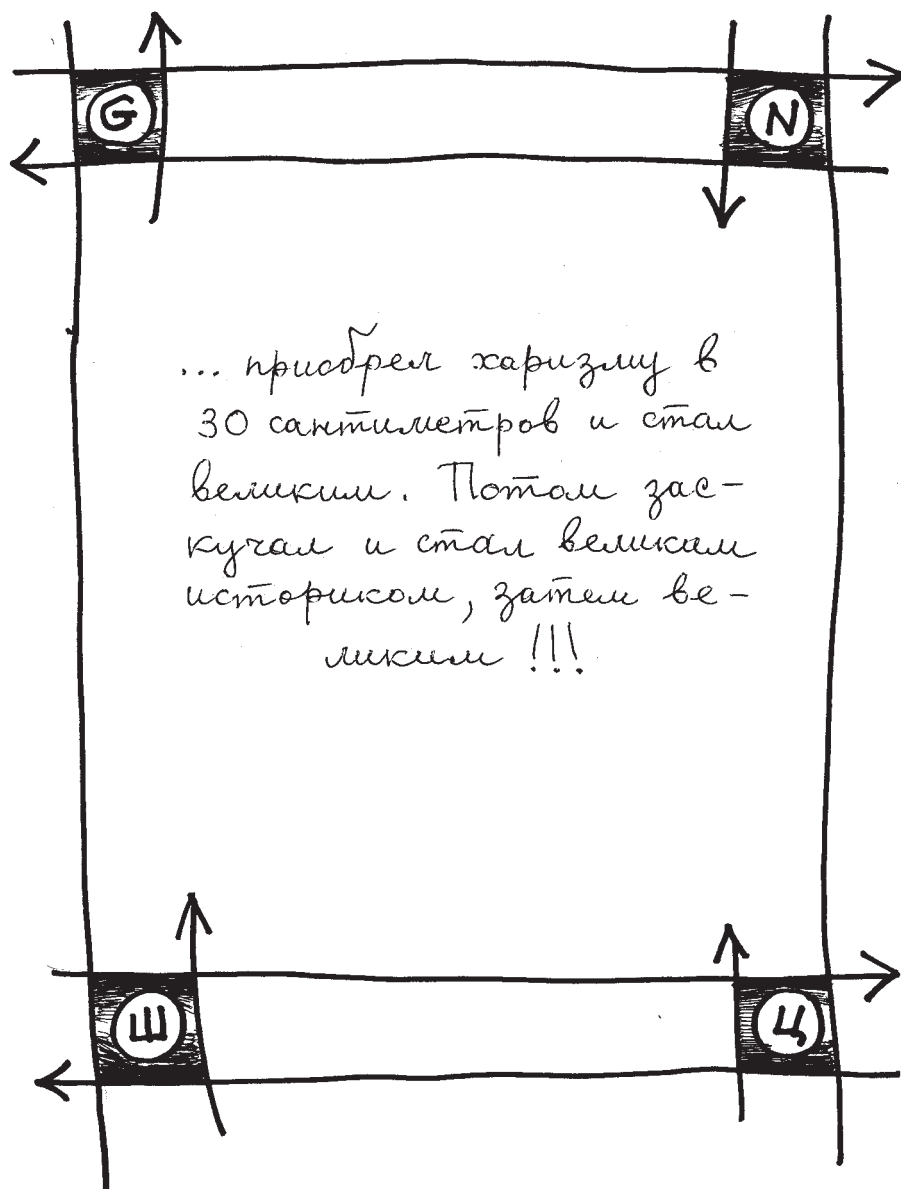 G
N
... приобрел харизму в
30 сантиметров и стал
великим. Потом зас-
кучал и стал великим
историком, затем ве-
ликим !!!
Ш
Ц